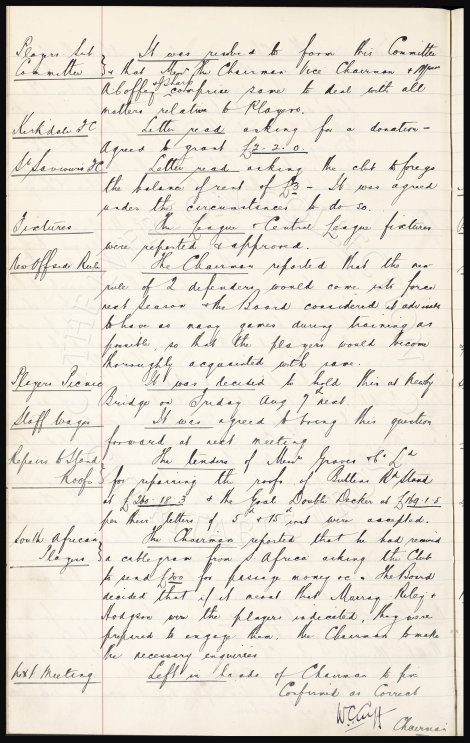 Players Sub It was resolved to form this Committee
Committee & that Messrs The Chairman Vice Chairman & Messrs
& Sharp
comprise same to deal with all
matters relative to Players.
Kirkdale F C Letter read asking for a donation –
Agreed to grant £2.2.0.
St Saviours F C Letter read asking the club to forego
the balance of rent of £3 – It was agreed
under the circumstances to do so.
Fixtures The League & Central League fixtures
were reported & approved.
New Offside Rule The Chairman reported that the new
rule of 2 defenders would come into force
next season & the Board considered it advisable
to have as many games during training as
possible, so that the players would become
thoroughly acquainted with same.
Players Picnic It was decided to hold this at Hewby
Bridge on Friday Aug 7th next
Staff Wages It was agreed to bring this question
forward at next meeting
Repairs to Stand The tenders of Messrs Groves & Co Ld
Roofs for repairing the roofs of Bullens Rd Stand
at £260.18.3 & the Goal Double Decker at £169.1.5
per their letters of 5th & 15th inst were accepted.
South African The Chairman reported that he had received
Players a cablegram from S. Africa asking the Club
to send £200 for passage money &c. The Board
decided that if it meant that Murray Riley &
Hodgson were the players indicated, they were
prepared to engage them, the Chairman to make
the necessary enquiries
Next Meeting Left in hands of Chairman to fix
Confirmed as Correct
W C Cuff
Chairman